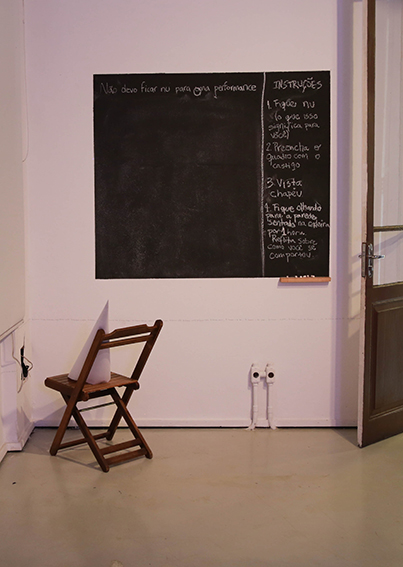 Não devo ficar nu para uma performance
INSTRUÇÕES
1. Fique nu
(o que isso
significa para
você)
2. Preencha o
quadro com o
castigo
3. Vista
chapéu
4. Fique olhando
para a parede,
sentado na cadeira
por 1 hora
Reflita sobre
como você se
comportou.